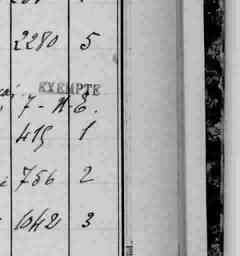 2280 5
EXEMPTE
7-N-E.
419 1
756 2
1042 3